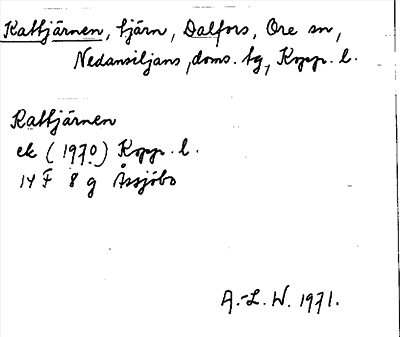 Rattjärnen, tjärn, Dalfors, Ore sn,
Nedansiljans, doms. tg, Kopp. l.
Rattjärnen
ek (1970) Kopp. l.
14 F 8 g Åssjöbo
A.-L. W. 1971.